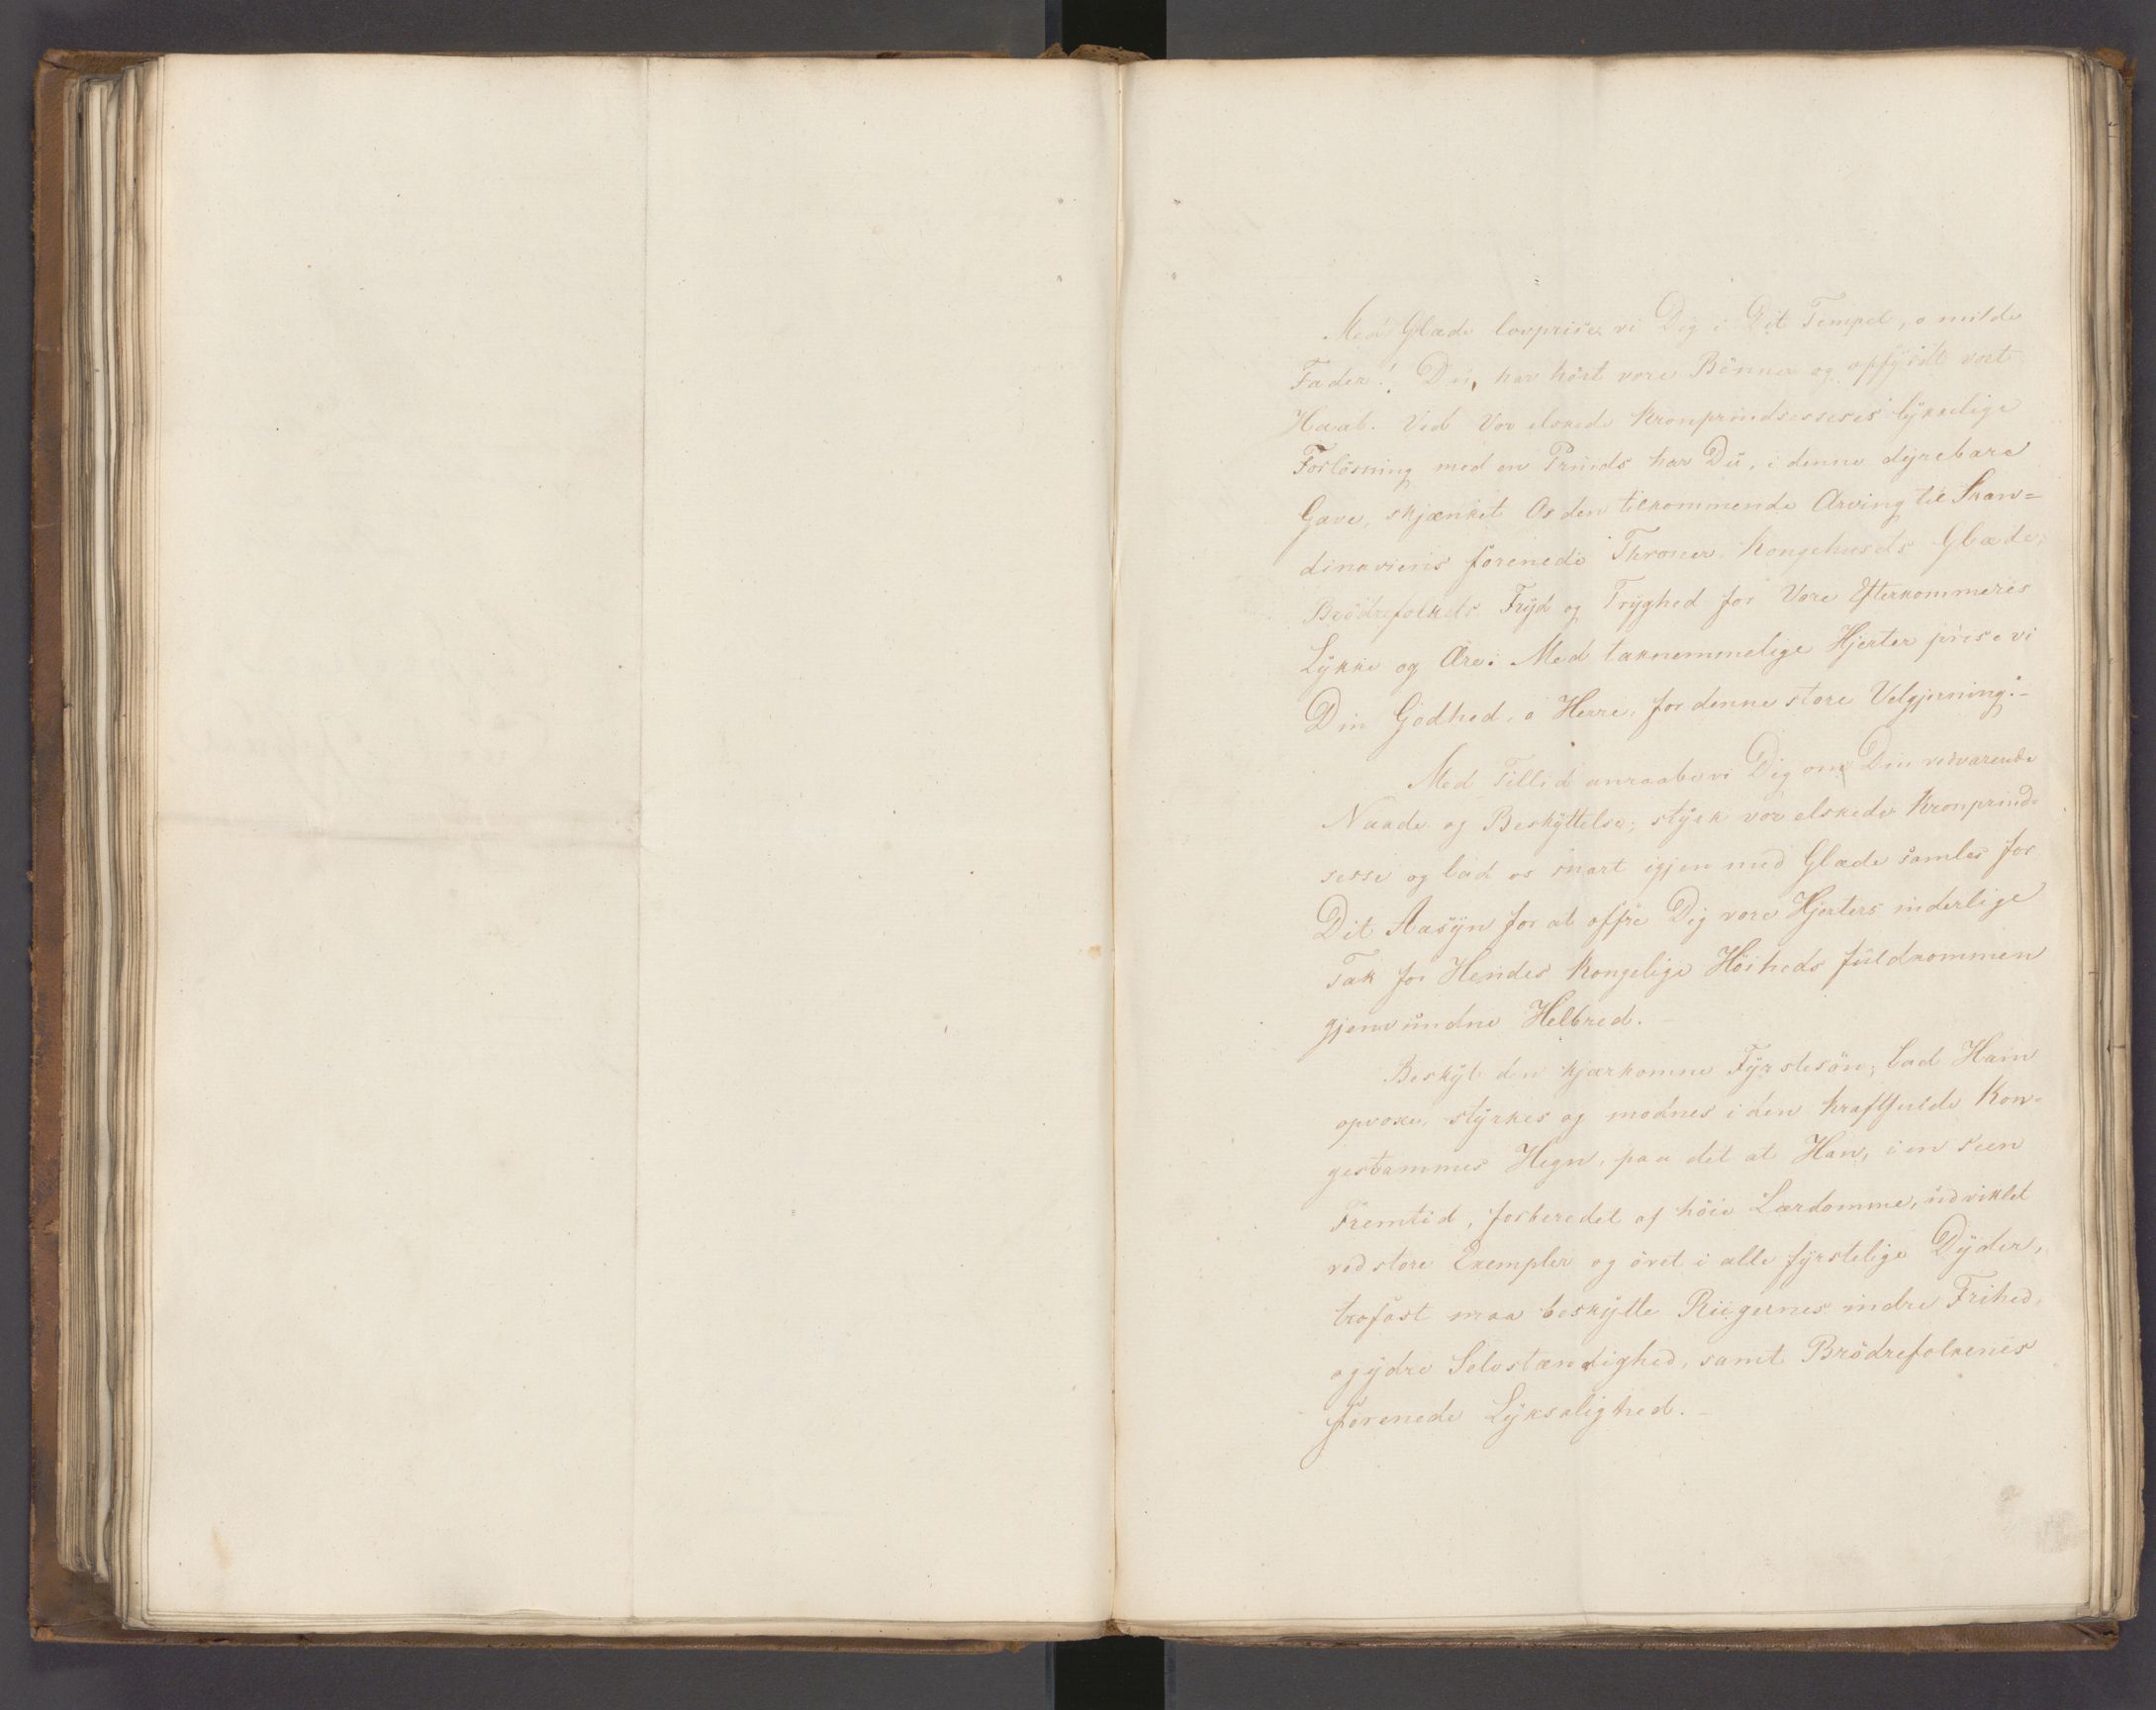 Med Glæde lovprise vi Dig i Dit Tempel, o milde
Fader! Du, har hört vore Bönner og opfyldt vort
Haab. Ved Vor elskede Kronprindsesses lykkelige
Forlösning med en Prinds har Du, i denne dyrebare
Gave, skjænket Os den tilkommende Arving til Skan=
dinaviens forenede Throner, Kongehusets Glæde,
Brödrefolkets Fryd og Tryghed for Vore Efterkommeres
Lykke og Ære. Med taknemmelige Hjerter prise vi
Din Godhed, o Herre, for denne store Velgjerning.-
Med Tillid anraabe vi Dig om Din vedvarende
Naade og Beskyttelse; styrk vor elskede Kronprind-
sesse og lad os snart igjen med Glæde samles for
Dit Aasyn for at offre Dig vore Hjerters inderlige
Tak for Hendes Kongelige Höiheds fuldkommen
gjenvundne Helbred.
Beskyt den kjærkomne Fyrstesön; lad Ham
opvoxe, styrkes og modnes i den kraftfulde Kon-
gestammes Hegn, paa det at Han, i en seen
Fremtid, forberedet af höie Lærdomme, udviklet
ved store Exempler og övet i alle fyrstelige Dyder,
trofast maa beskytte Riigernes indre Frihed,
og ydre Selvstændighed, samt Brödrefolkenes
forenede Lyksalighed.-